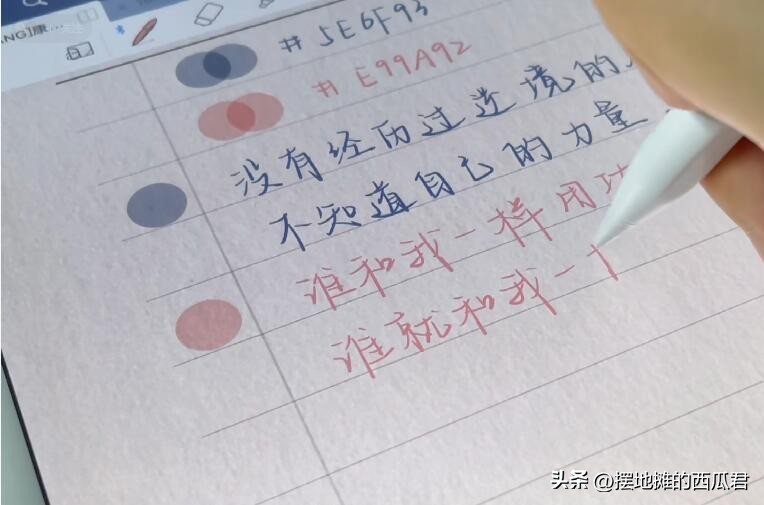 NG]康...
# 5E6F93
# E99A92
没有经历过逆境的
不知道自己的力量
谁和我一样用功
谁就和我一
头条 @摆地摊的西瓜君